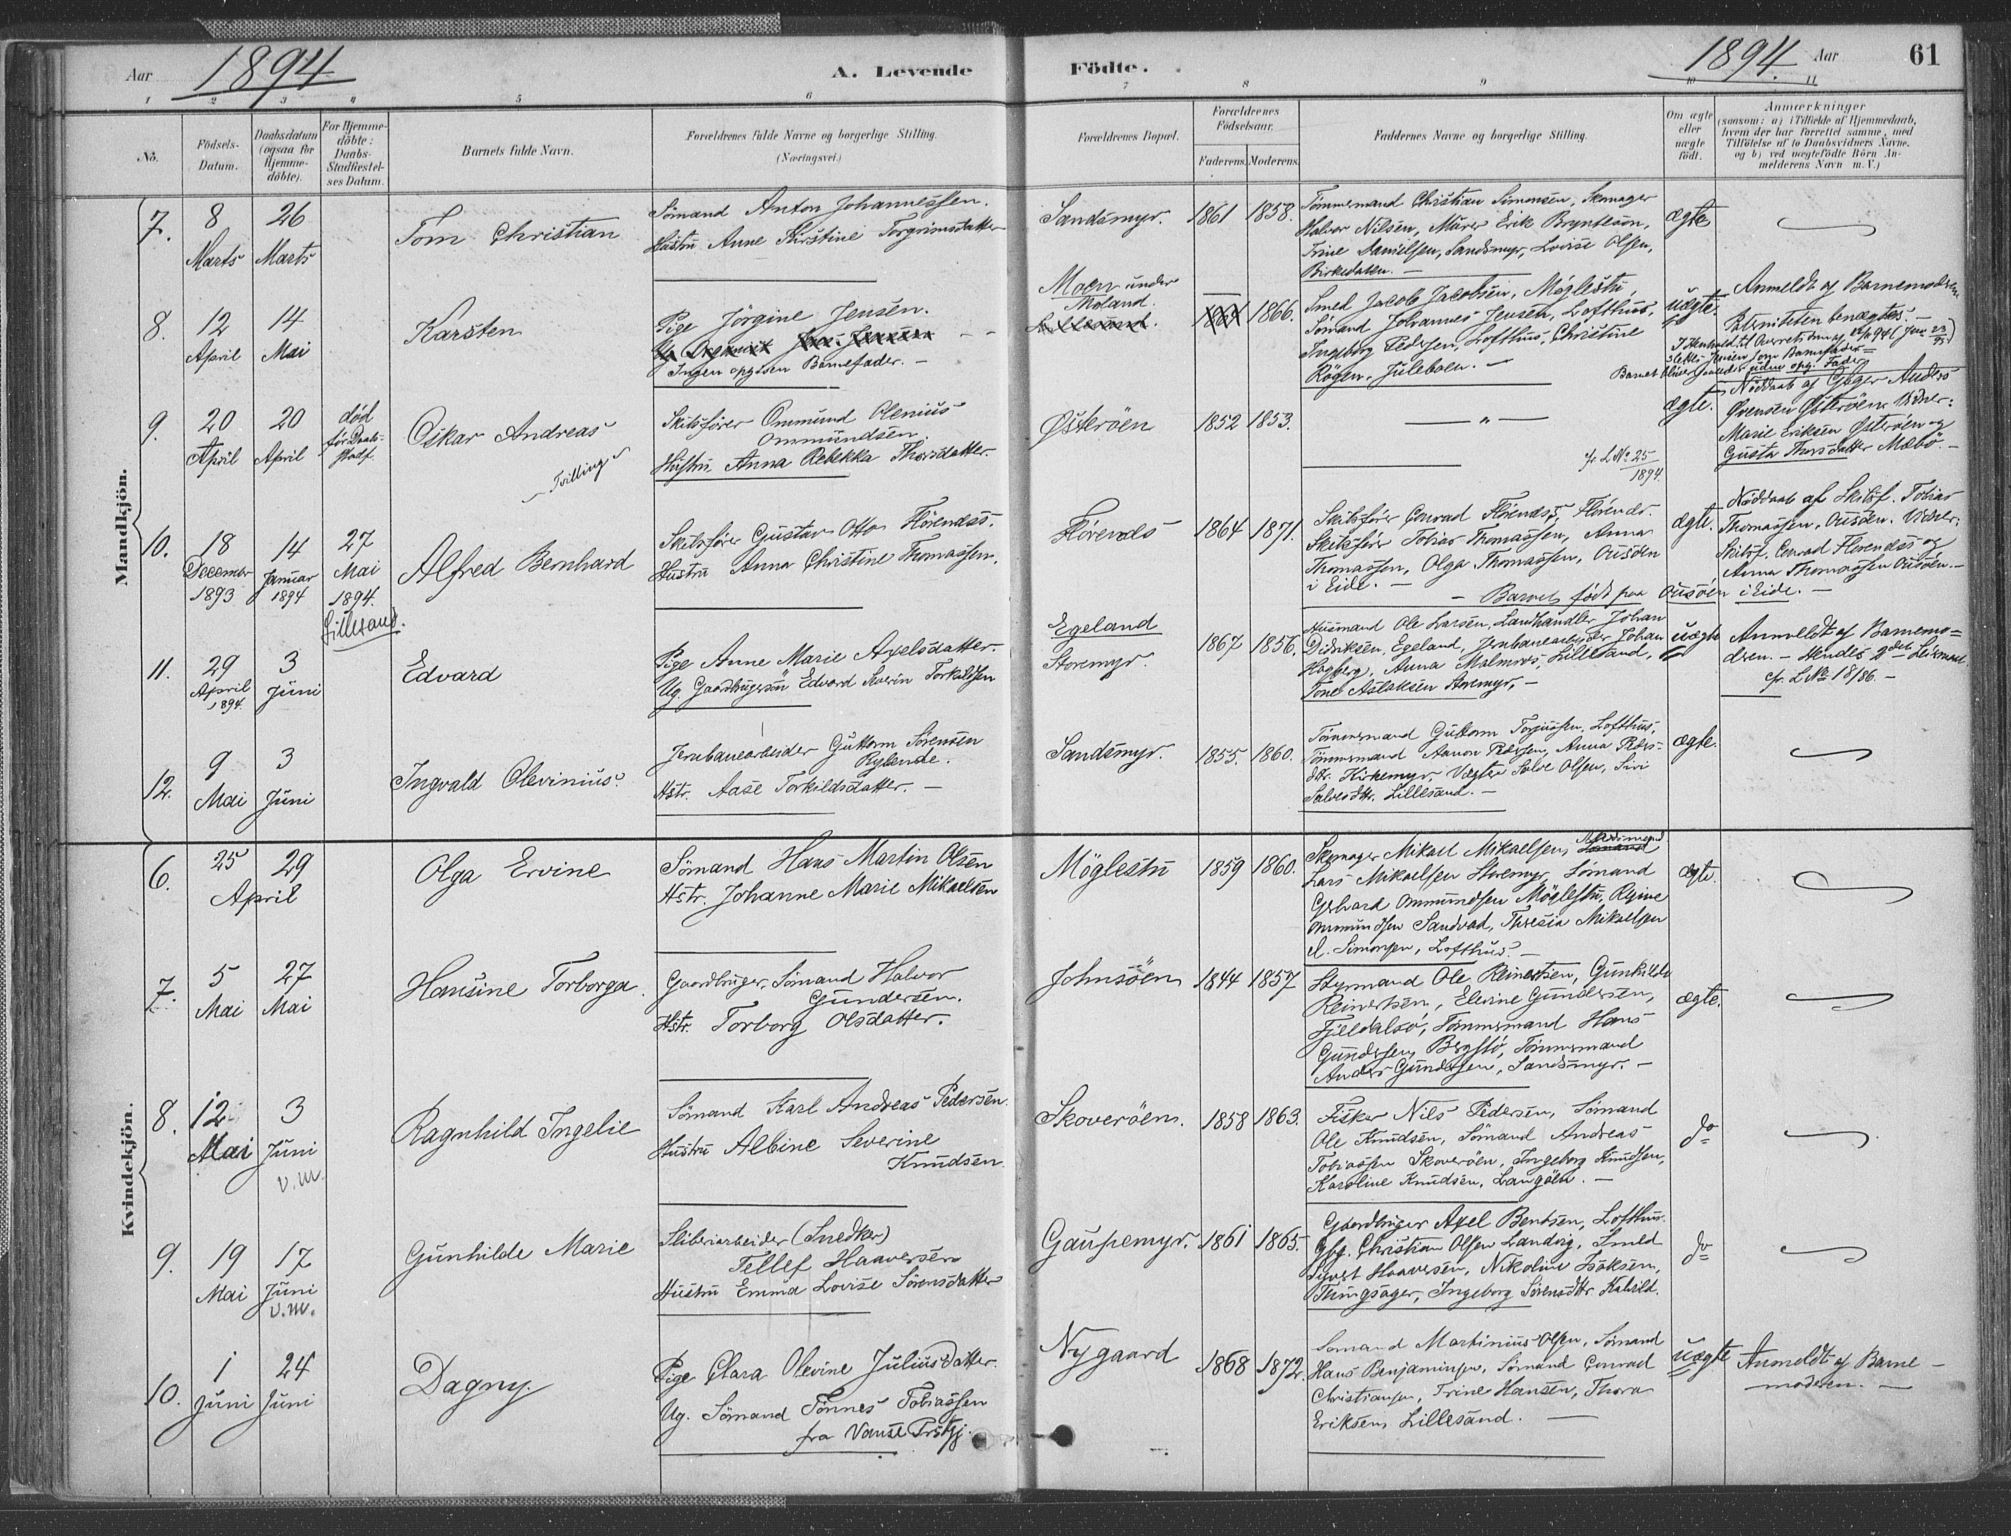 Aar 1894 A. Levende Fødte. 1894. Aar 61
1 2 3 4 5 6 7 8 9 10 11
No.
Fødsels-
Datum.
Daabsdatum
(ogsaa for
Hjemme-
døbte).
For Hjemme-
døbte:
Daabs-
Stadfæstel-
ses Datum.
Barnets fulde Navn.
Forældrenes fulde Navne og borgerlige Stilling.
(Næringsvei.)
Forældrenes Bopæl.
Forældrenes
Fødselsaar.
Faderens. Moderens.
Faddernes Navne og borgerlige Stilling.
Om ægte
eller
uægte
født.
Anmærkninger
(saasom: a) i Tilfælde af Hjemmedaab,
hvem der har forrettet samme, med
Tilføielse af to Daabsvidners Navne.
og b) ved uægtefødte Børn An-
melderens Navn m. V.)
Mandkjøn.
7.
8
Marts
26
Marts
Tom Christian
Sømand Anton Johannessen.
Hustru Anne Kirstine Torgrimsdatter
Sandsmyr.
1861 1858.
Tømmermand Christian Simonsen, Skomager
Halvor Nilsen, Murer Erik Bryntesen,
Trine Danielsen, Sandsmyr, Lovise Olsen,
Birkedalen.
ægte
8.
12
April
14
Mai
Karsten
Pige Jørgine Jensen.
Ingen opgiven Barnefader.
Moen under
Moland.
1866.
Smed Jacob Jacobsen, Møglestu,
Sømand Johannes Jensen, Lofthus,
Ingeborg Pedersen, Lofthus, Christine
Røgen, Juleboen.
uægte
Anmeldt af Barnemoderen
Paterniteten benægtes.
9.
20
April
20
April
død
før Daabs-
stadf.
Oskar Andreas
Tvilling
Skibsfører Ommund Olenius
Ommundsen.
Hustru Anna Rebekka Thorsdatter.
Østerøen
1852 1853.
"
cfr L No 25
1894.
ægte.
Nøddaab af Gbger Anders
Evensen Østerøen. Vidner:
Marie Eriksen Østerøen og
Gusta Thorsdatter Mæbø.
10.
18
December
1893
14
Januar
1894
27
Mai
1894.
Lillesand.
Alfred Bernhard
Skibsfører Gustav Otto Florendss.
Hustru Anna Christine Thomassen.
Florends
1864 1871.
Skibsfører Conrad Florendss, Florends.
Skibsfører Tobias Thomassen, Anna
Thomassen, Olga Thomassen, Ousøen
i Eide.
Barnet født paa Ousøen i Eide.
ægte.
Nøddaab af Skibsf. Tobias
Thomassen, Ousøen. Vidner:
Skibsf. Conrad Florendss og
Anna Thomassen Ousøen.
11.
29
April
1894.
3
Juni
Edvard
Pige Anne Marie Axelsdatter.
Ug. Gaardbrugersøn Edvard Severin Torkildsen
Egeland
Storemyr.
1867 1856.
Husmand Ole Larsen, Landhandler Johan
Didriksen, Egeland, Jernbanearbeider Johan
Hagberg, Anna Malmros, Lillesand,
Tone Aslaksen Storemyr.
uægte
Anmeldt af Barnemo=
deren. Hendes 2det Leiermaal
cfr. L No 18/86.
12.
9
Mai
3
Juni
Ingvald Olevinius.
Jernbanearbeider Guttorm Sørensen
Rylende.
Hstr. Aase Torkildsdatter.
Sandsmyr.
1855. 1860.
Tømmermand Guttorm Torjussen, Lofthus,
Tømmermand Aanon Pedersen, Anna Peders-
dtr. Kirkemyr, Vægter Salve Olsen, Siri
Salvesdtr. Lillesand.
ægte.
Kvindekjøn.
6.
25
April
29
Olga Ervine
Sømand Hans Martin Olsen
Hstr. Johanne Marie Mikaelsen
Møglestu
1859 1860.
Skomager Mikael Mikaelsen,
Lars Mikaelsen Storemyr, Sømand
Gerhard Ommundsen Møglestu, Regine
Ommundsen Sandvad, Theresia Mikaelsen
A. Simonsen, Lofthus.
ægte.
7.
5
Mai
27
Mai
Hansine Torborga.
Gaardbruger, Sømand Halvor
Gundersen.
Hstr. Torborg Olsdatter.
Johnsøen
1844 1857
Styrmand Ole Reinertsen, Gunhilde
Reinertsen, Elevine Gundersen,
Fjeldalsø, Tømmermand Hans
Gundersen, Bergstø, Tømmermand
Anders Gundersen, Sandsmyr.
ægte.
8.
12
Mai
3
Juni
v.m.
Ragnhild Ingelie
Sømand Karl Andreas Pedersen.
Hustru Albine Severine
Knudsen
Skoverøen.
1858 1863.
Fisker Nils Pedersen, Sømand
Ole Knudsen, Sømand Andreas
Tobiassen Skoverøen, Ingeborg Knudsen,
Karoline Knudsen, Langøen.
do
9.
19
Mai
17
Juni
v.m.
Gunhilde Marie
Sliberiarbeider (Snedker)
Tellef Haaversen
Hustru Emma Lovise Sørensdatter
Gaupemyr.
1861 1865.
Gaardbruger Axel Bentsen, Lofthus
Gbg. Christian Olsen Landvig, Smed
Syvert Haaversen, Nikoline Isaksen,
Tingsager, Ingeborg Sørensdtr. Kalvild.
do
10.
1
Juni
24
Juni
Dagny.
Pige Clara Olevine Juliusdatter.
Ug. Sømand Tønnes Tobiassen
fra Vanse Prstgj.
Nygaard
1868 1872.
Sømand Martinius Olsen, Sømand
Hans Benjaminsen, Sømand Conrad
Christiansen, Trine Hansen, Thora
Eriksen, Lillesand.
uægte
Anmeldt af Barne-
moderen.